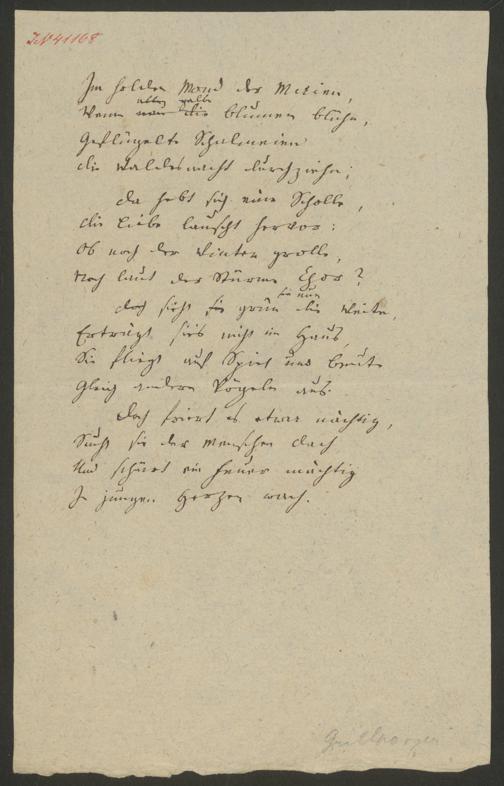 IN 41168
Im holden Mond der Maien,
alten gelbe
Wenn nun die Blumen blühn,
Geflügelte Schalmeien
die Waldesnacht durchziehn;
da hebt sich eine Scholle,
die Liebe lauscht hervor:
Ob noch der Winter grolle,
Noch laut der Stürme Chor?
sie nun
doch sieht sie grün die Weite,
Erträgt sies nicht im Haus,
Sie fliegt auf Spiel und Beute
Gleich andern Vögeln aus.
Doch friert es etwa nächtig,
Sucht sie der Menschen Dach
Und schürt ein Feuer mächtig
In jungen Herzen wach.
Grillparzer